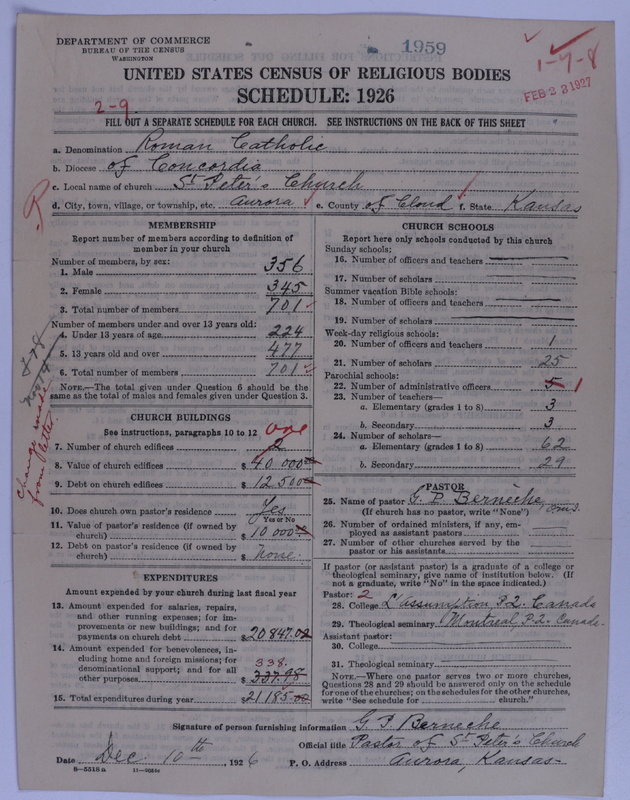 DEPARTMENT OF COMMERCE
BUREAU OF THE CENSUS
WASHINGTON
1959
1-7-8
FEB 23 1927
UNITED STATES CENSUS OF RELIGIOUS BODIES
SCHEDULE: 1926
2-9
FILL OUT A SEPARATE SCHEDULE FOR EACH CHURCH. SEE INSTRUCTIONS ON THE BACK OF THIS SHEET
a. Denomination Roman Catholic
b. Diocese of Concordia
c. Local name of church St Peter's Church
d. City, town, village, or township, etc. Aurora e. County of Cloud f. State Kansas
MEMBERSHIP
Report number of members according to definition of member in your church
Number of members, by sex:
1. Male 356
2. Female 345
3. Total number of members 701
Number of members under and over 13 years old:
4. Under 13 years of age 224
5. 13 years old and over 477
6. Total number of members 701
NOTE.—The total given under Question 6 should be the same as the total of males and females given under Question 3.
change made from letter
CHURCH BUILDINGS
See instructions, paragraphs 10 to 12
one
7. Number of church edifices 2
8. Value of church edifices $40 000
9. Debt on church edifices $12 500
10. Does church own pastor's residence Yes
Yes or No
11. Value of pastor's residence (if owned by church) $10 000
12. Debt on pastor's residence (if owned by church) $ None
EXPENDITURES
Amount expended by your church during last fiscal year
13. Amount expended for salaries, repairs, and other running expenses; for improvements or new buildings; and for payments on church debt $20847.02
14. Amount expended for benevolences, including home and foreign missions; for denominational support; and for all other purposes $337.98
338.
15. Total expenditures during year $21185.00
CHURCH SCHOOLS
Report here only schools conducted by this church
Sunday schools:
16. Number of officers and teachers
17. Number of scholars
Summer vacation Bible schools:
18. Number of officers and teachers
19. Number of scholars
Week-day religious schools:
20. Number of officers and teachers 1
21. Number of scholars 25
Parochial schools:
22. Number of administrative officers 5 1
23. Number of teachers—
a. Elementary (grades 1 to 8) 3
b. Secondary 3
24. Number of scholars—
a. Elementary (grades 1 to 8) 62
b. Secondary 29
PASTOR
25. Name of pastor G. P. Berneche,
(If church has no pastor, write "None")
26. Number of ordained ministers, if any, employed as assistant pastors
27. Number of other churches served by the pastor or his assistants
If pastor (or assistant pastor) is a graduate of a college or theological seminary, give name of institution below. (If not a graduate, write "No" in the space indicated.)
Pastor: 2
28. College L'Assumption, P.Q. Canada
29. Theological seminary Montreal, P.Q. Canada.
Assistant pastor:
30. College
31. Theological seminary
NOTE.—Where one pastor serves two or more churches, Questions 28 and 29 should be answered only on the schedule for one of the churches; on the schedules for the other churches, write "See schedule for church."
Signature of person furnishing information G. P. Berneche
Official title Pastor of St Peter's Church
Date Dec. 10th, 1926 P. O. Address Aurora, Kansas
8—5518a